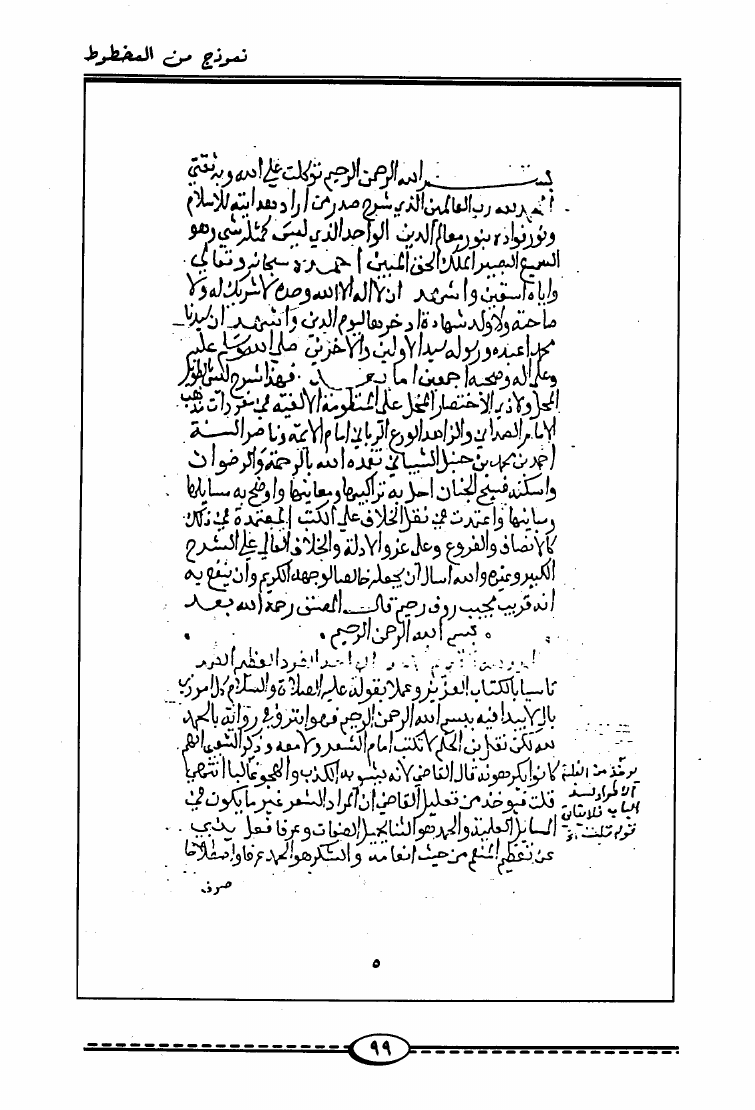 نموذج من المخطوط
بسم الله الرحمن الرحيم توكلت على الله وبه ثقتي
الحمد لله رب العالمين الذي شرح صدر من اراد هدايته للاسلام
ونور فواده بنور معالم الدين الواحد الذي ليس كمثله شي وهو
السميع البصير الملك الحق المبين احمده سبحانه وتعالى
واياه استعين واشهد ان لا اله الا الله وحده لا شريك له ولا
صاحبة ولا ولد شهادة ادخرها ليوم الدين واشهد ان سيدنا
محمدا عبده ورسوله سيد الاولين والاخرين صلى الله وسلم عليه
وعلى اله وصحبه اجمعين اما بعد فهذا شرح ليس بالطويل
الممل ولا ذي الاختصار المخل على المنظومة الالفية في مفردات مذهب
الامام الصمداني والزاهد الورع الرباني امام الائمة وناصر السنة
احمد بن محمد بن حنبل الشيباني تغمده الله بالرحمة والرضوان
واسكنه فسيح الجنان احل به تراكيبها ومعانيها واوضح به مسايلها
ومبانيها واعتمدت في نقل الخلاف على الكتب المعتمدة في ذلك
كالانصاف والفروع وعلى عزو الادلة والخلاف العالي على الشرح
الكبير وغيره والله اسال ان يجعله خالصا لوجهه الكريم وان ينفع به
انه قريب مجيب روف رحيم قال المصنف رحمه الله بعد
بسم الله الرحمن الرحيم
الفرد العظيم
تاسيا بالكتاب العزيز وعملا بقوله عليه الصلاة والسلام كل امر ذي
بال لا يبدا فيه ببسم الله الرحمن الرحيم فهو ابتر وفي رواية بالحمد
لله لكن نقل بن الحكم لا تكتب امام الشعر ولا معه وذكر الشعبي انهم
كانوا يكرهونه قال القاضي لانه يشوبه الكذب والهجو غالبا انتهى
قلت فيوخذ من تعليل القاضي ان المراد الشعر غير ما يكون في
المسائل العلمية والحمد هو الثنا بجميل الصفات وعرفا فعل ينبي
عن تعظيم المنعم من حيث انعامه والشكر هو الحمد عرفا واصطلاحا
صرف
يوخذ من
٥
٩٩